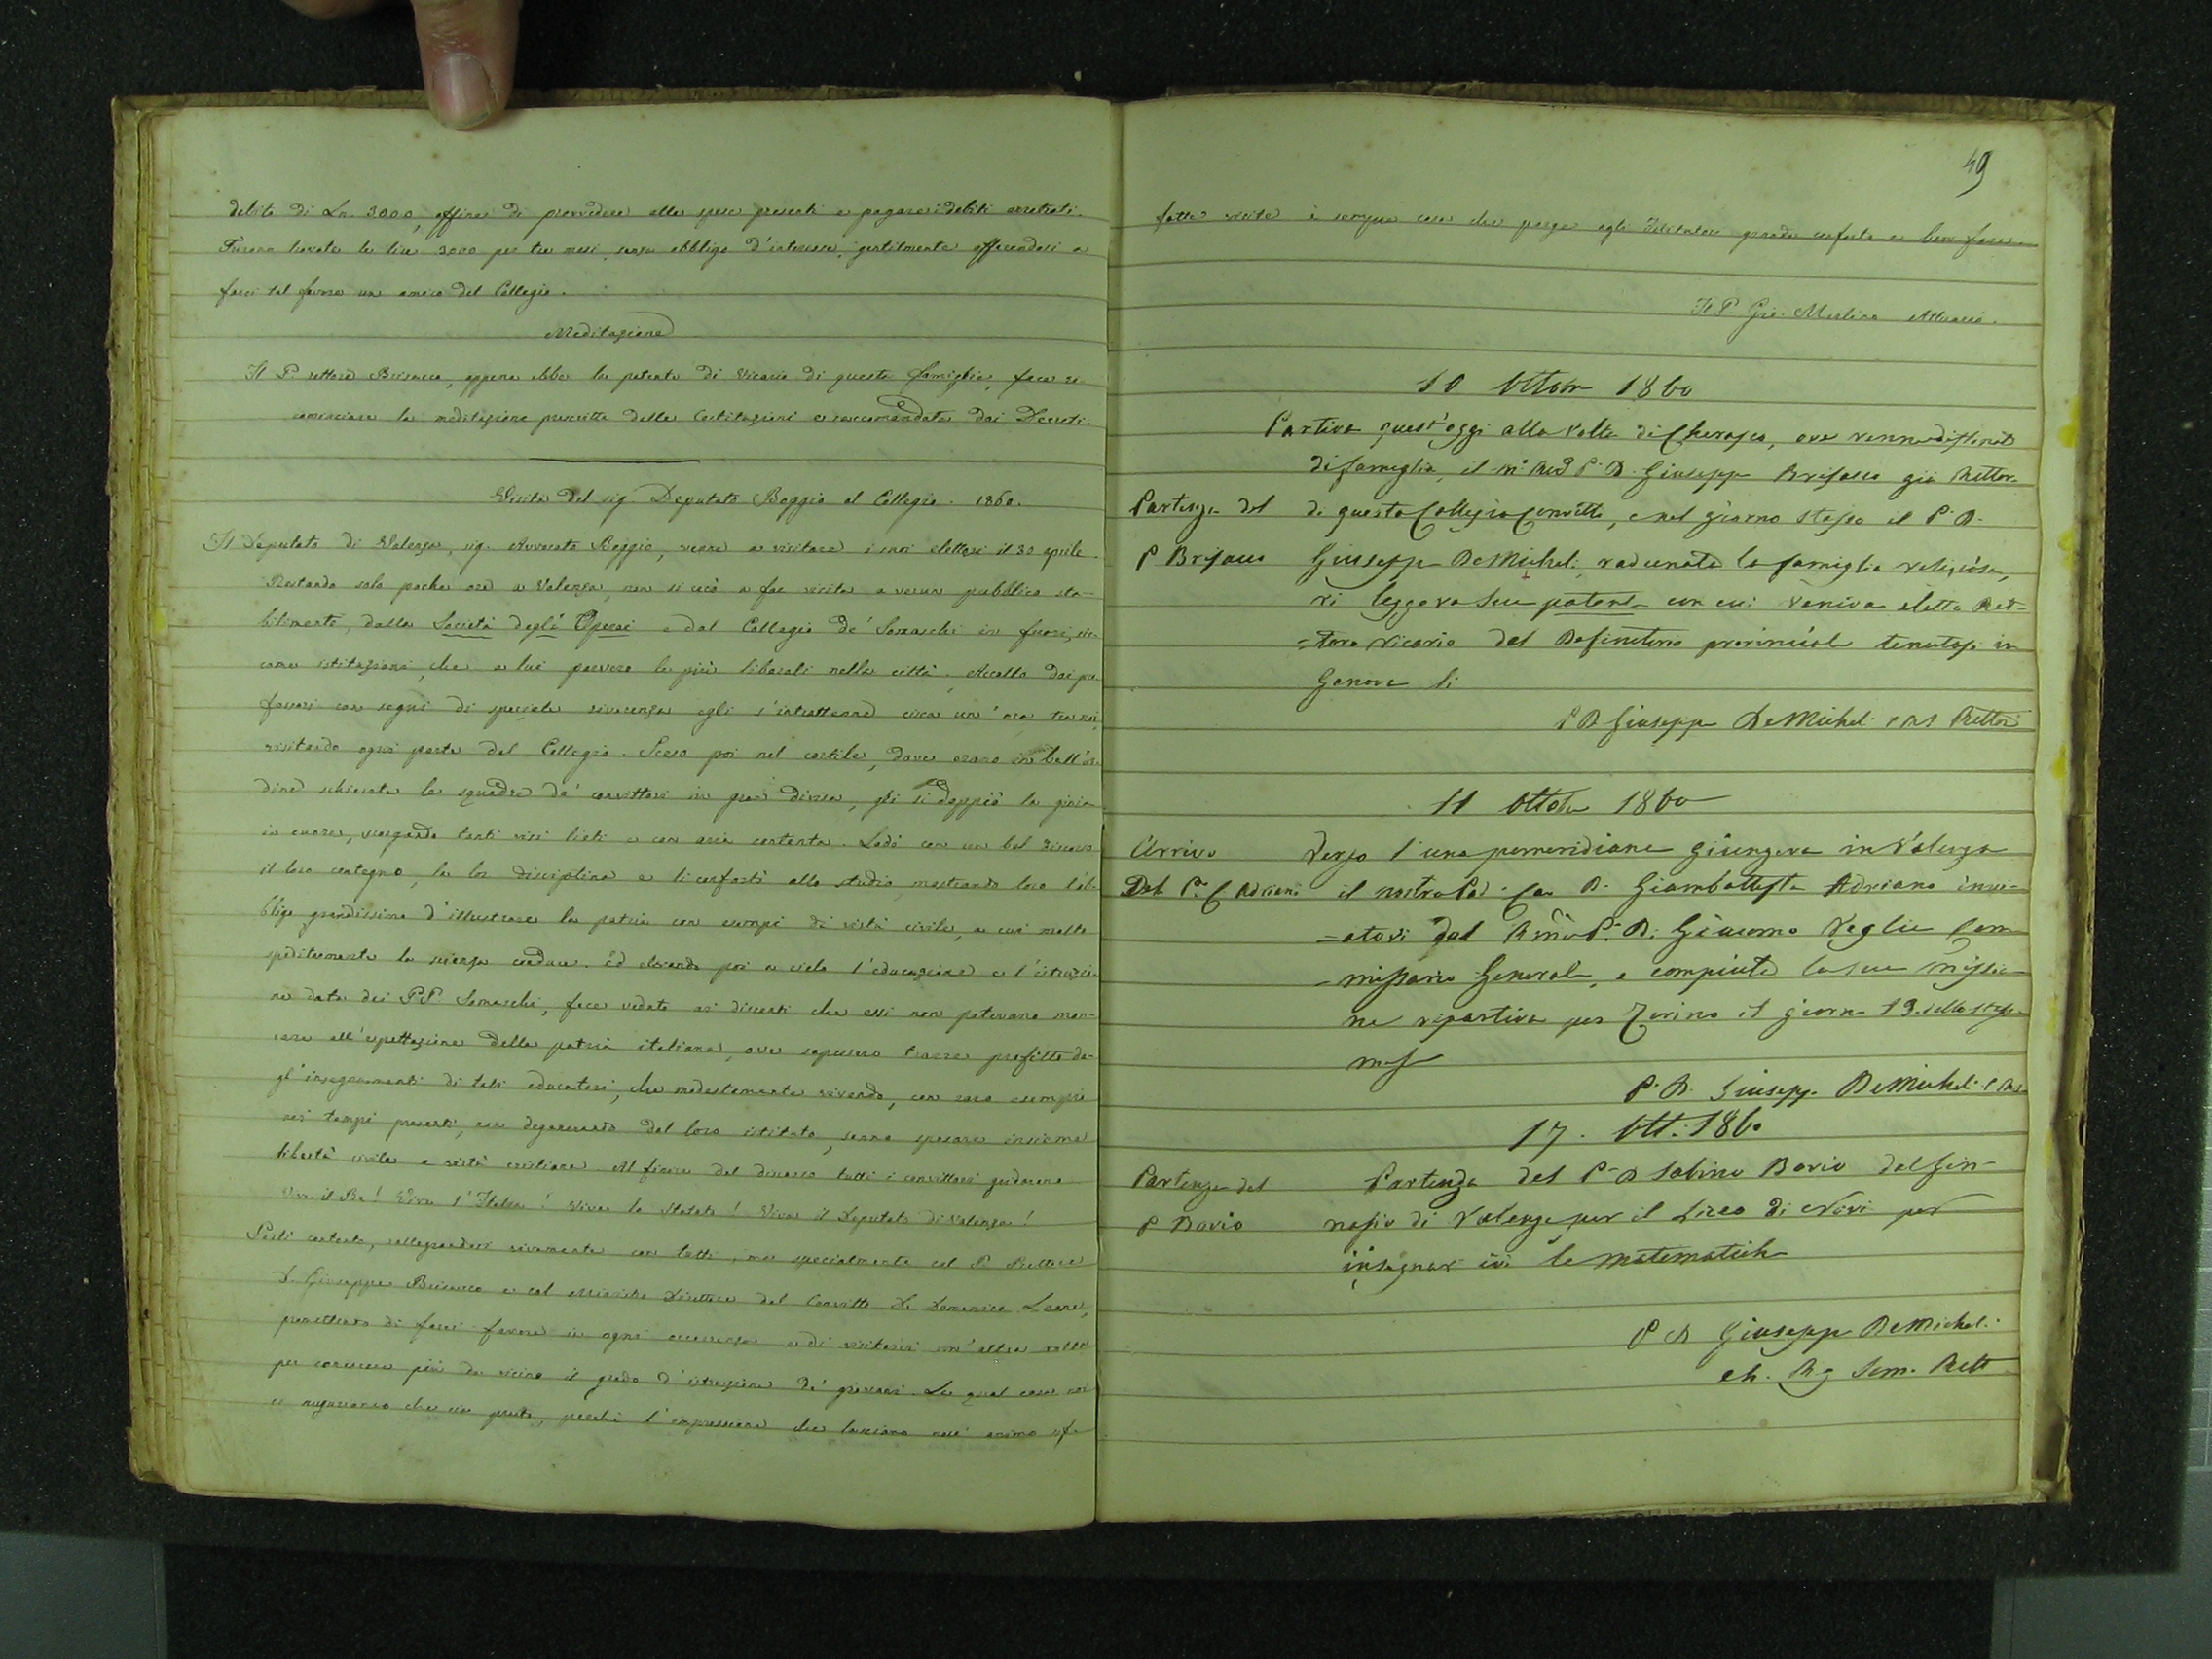 debito di Ln. 3000, affine di provvedere alle spese presenti e pagare i debiti arretrati.
Furono trovate le lire 3000 per tre mesi, senza obbligo d'interesse, gentilmente offerendosi a
farci tal favore un amico del Collegio.
Meditazione
Il P. rettore Brisacco, appena ebbe la patente di Vicario di questa famiglia, fece ri-
cominciare la meditazione prescritta dalle Costituzioni e raccomandata dai Decreti.
Visita del sig. Deputato Boggio al Collegio. 1860.
Il Deputato di Valenza, sig. Avvocato Boggio, venne a visitare i suoi elettori il 30 aprile.
Restando solo poche ore a Valenza, non si recò a far visita a verun pubblico sta-
bilimento, dalla Società degli Operai e dal Collegio de' Somaschi in fuori, sic-
come istituzioni, che a lui parvero le più liberali nella città. Accolto dai pro-
fessori con segni di speciale riverenza egli s'intrattenne circa un'ora tra noi,
visitando ogni parte del Collegio. Sceso poi nel cortile, dove erano in bell'or-
dine schierate le squadre de' convittori in gran divisa, gli si doppiò la gioia
in cuore, scorgendo tanti visi lieti e con aria contenta. Lodò con un bel discorso
il loro contegno, la lor disciplina e li confortò allo studio, mostrando loro l'ob-
bligo grandissimo d'illustrare la patria con esempi di virtù civile, a cui molto
speditamente la scienza conduce. Ed elevando poi a cielo l'educazione e l'istruzio-
ne data dai PP. Somaschi, fece vedere ai discenti che essi non potevano man-
care all'espettazione della patria italiana, ove sapessero trarre profitto da-
gl'insegnamenti di tali educatori, che modestamente vivendo, con raro esempio
nei tempi presenti, non degenerando dal loro istituto, sanno sposare insieme
libertà civile e virtù cristiana. Al finire del discorso tutti i convittori gridarono
Viva il Re! Viva l'Italia! Viva lo Statuto! Viva il Deputato di Valenza!
Partì contento, rallegrandosi vivamente con tutti, ma specialmente col P. Rettore
D. Giuseppe Brisacco e col Ministro Direttore del Convitto D. Domenico Leone,
promettendo di farci favore in ogni occorrenza e di visitarci un'altra volta
per conoscere più da vicino il grado d'istruzione de' giovani. La qual cosa noi
ci auguriamo che sia presto, perché l'impressione che lasciano nell'animo sif-
49
fatte visite è sempre cosa che porge agli Istitutori grande conforto a ben fare.
Il P. Gio. Merlino Attuario.
10 Ottobre 1860
Partiva quest'oggi alla volta di Cherasco, ove venne destinato
di famiglia, il m.º Rev.º P. D. Giuseppe Brisacco già Rettore
Partenza del
di questo Collegio Convitto, e nel giorno stesso il P. D.
P Brisacco
Giuseppe DeMicheli, radunata la famiglia religiosa,
vi leggeva sua patente con cui veniva eletto Ret-
=tore Vicario dal Definitorio provinciale tenutosi in
Genova li
P D Giuseppe DeMicheli C R S Rettore
11 Ottobre 1860
Arrivo
Verso l'una pomeridiana giungeva in Valenza
Del P. C Adriani
il nostro Pad. Cav D. Giambattista Adriano invi=
=atovi dal Rmo P. D. Giacomo Veglio Com
=missario Generale, e compiuta la sua missio=
ne ripartiva per Torino il giorno 13. dello stesso
mese
P. D. Giuseppe DeMicheli C R S
17. Ott. 1860
Partenza del
Partenza del P. D Sabino Bovio dal Gin-
P Bovio
nasio di Valenza per il Liceo di Novi per
insegnar ivi le matematiche
P D Giuseppe DeMicheli
Ch. Rg Som. Rett